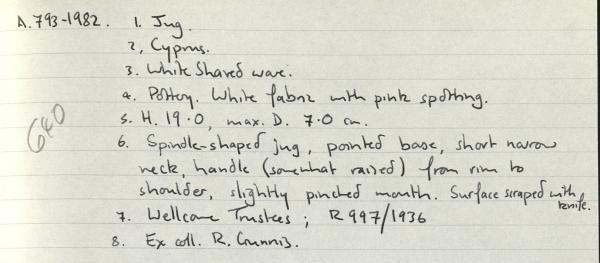 A.793-1982. 1. Jug.
2, Cyprus.
3. White Shaved ware.
4. Pottery. White fabric with pink spotting.
5. H. 19.0, max. D. 7.0 cm.
GEO
6. Spindle-shaped jug, pointed base, short narrow
neck, handle (somewhat raised) from rim to
shoulder, slightly pinched mouth. Surface scraped with knife.
7. Wellcome Trustees; R 997/1936
8. Ex coll. R. Gunnis.